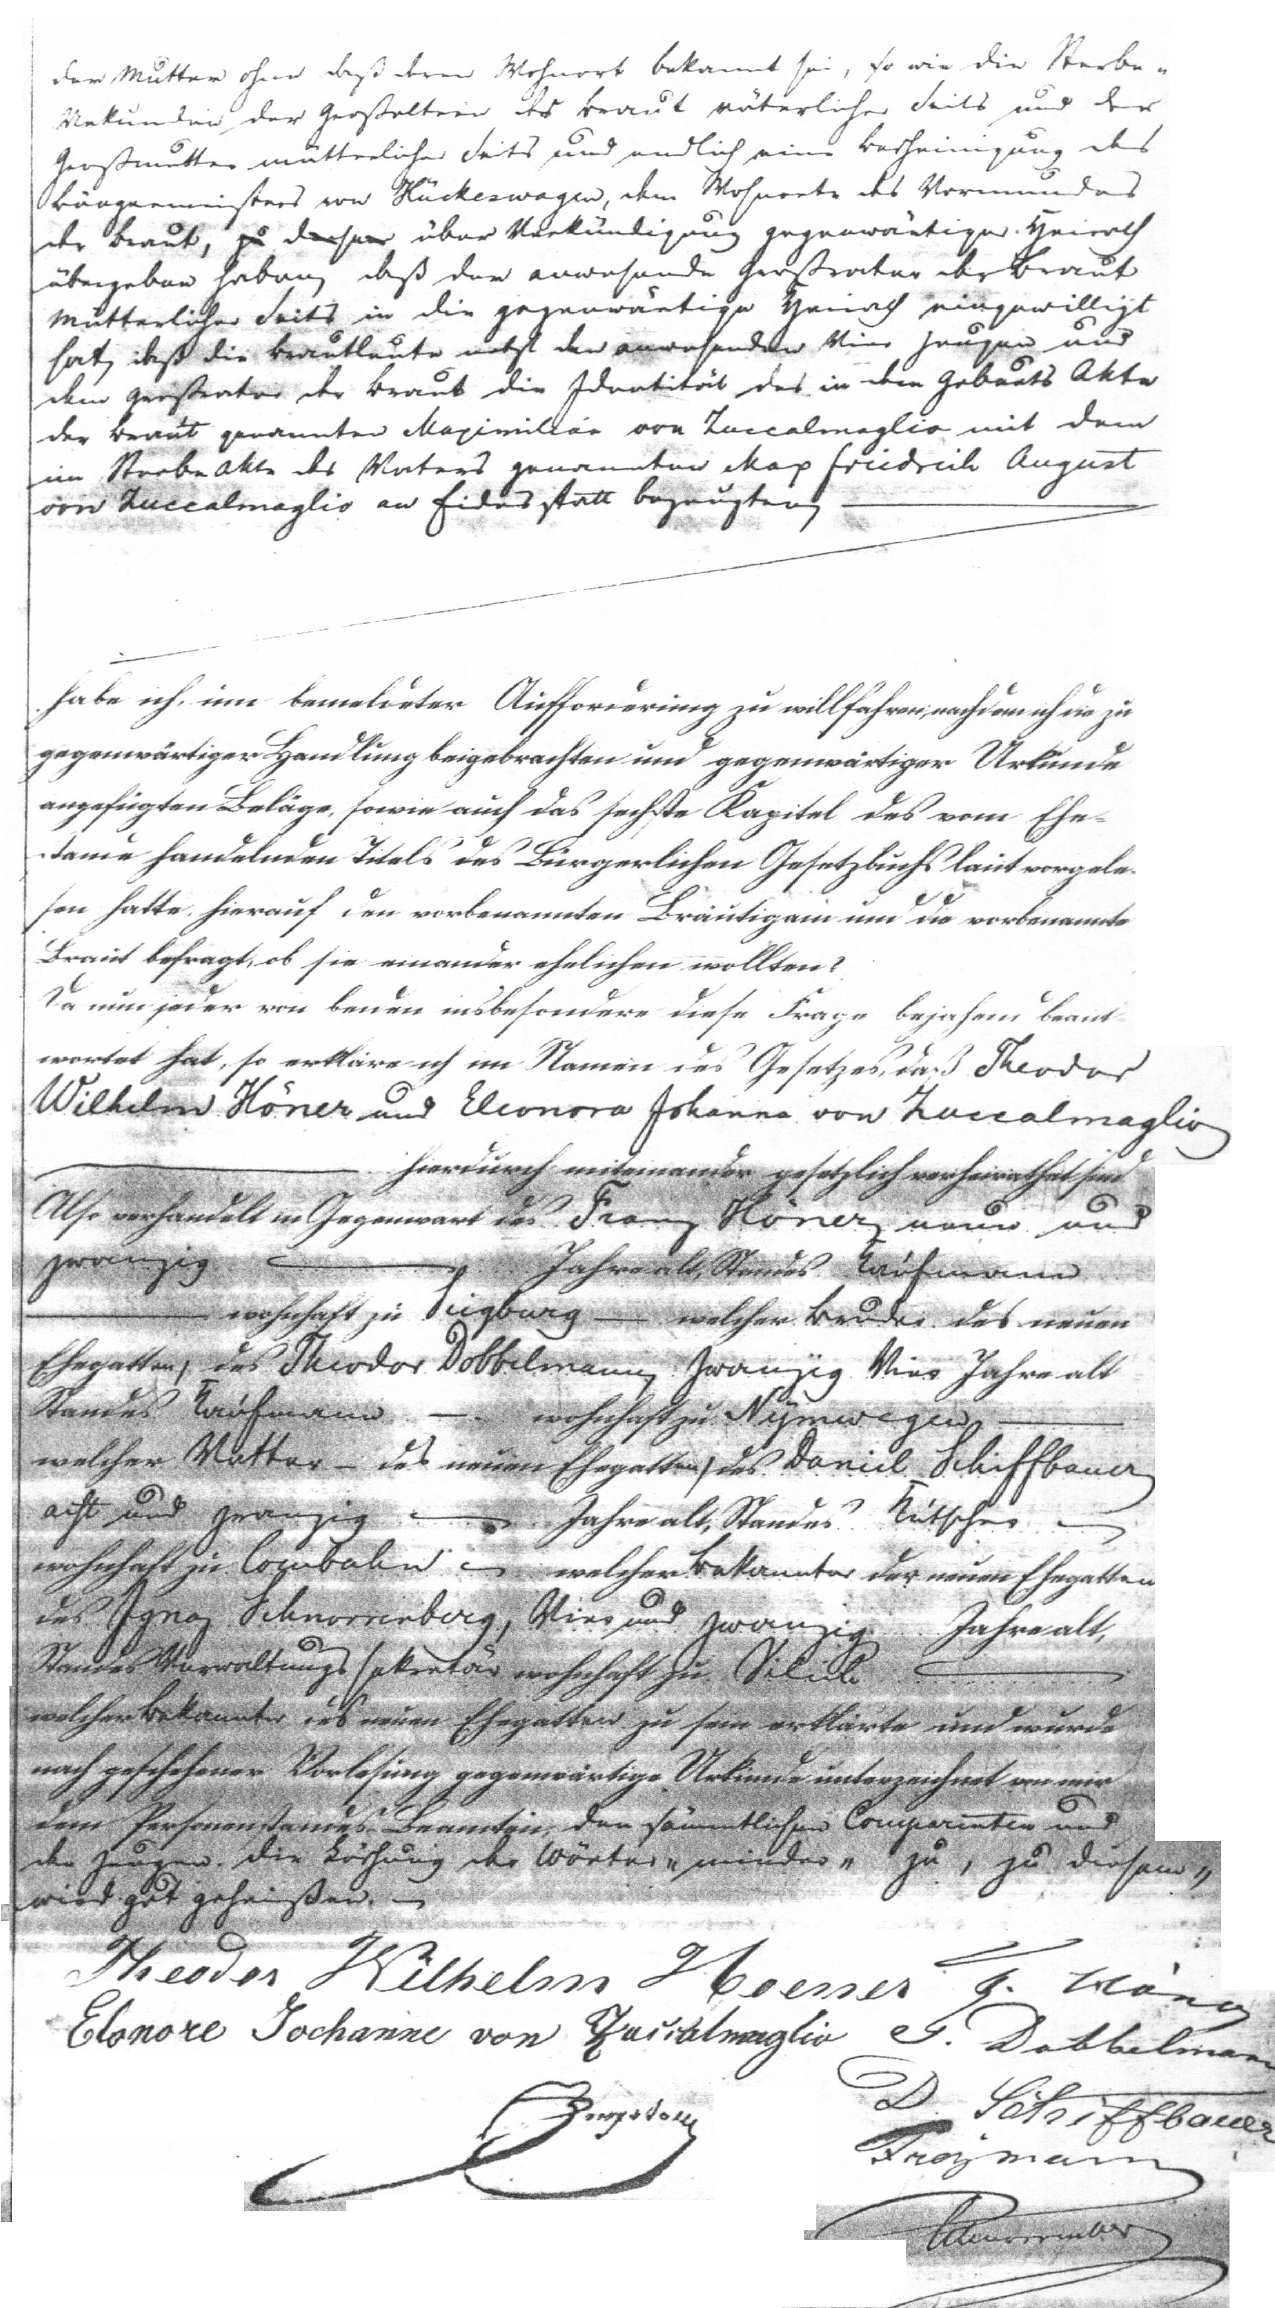 der Mutter ohne daß deren Wohnort bekannt sei, so wie die Sterbe-
Urkunden der Großeltern der Braut väterlicher Seits und der
Großmutter mütterlicher Seits und endlich eine Bescheinigung des
Bürgermeisters von Hückeswagen, dem Wohnorte des Vormundes
der Braut, zu dieser über Verkündigung gegenwärtiger Heirath
übergeben haben, daß der anwesende Großvater der Braut
mütterlicher Seits in die gegenwärtige Heirath eingewilligt
hat, daß die Brautleute nebst den anwesenden vier Zeugen und
dem Großvater der Braut die Identität des in dem Geburts Akte
der Braut genannten Maximilian von Zuccalmaglio mit dem
im Sterbe Akte des Vaters genannten Max Friedrich August
von Zuccalmaglio an Eides statt bezeugten,
habe ich, um bemeldeter Aufforderung zu willfahren, nachdem ich die zu
gegenwärtiger Handlung beigebrachten und gegenwärtiger Urkunde
angefügten Beläge, sowie auch das sechste Kapitel des vom Ehe-
stande handelnden Titels des Bürgerlichen Gesetzbuchs laut vorgele-
sen hatte, hierauf den vorbenannten Bräutigam und die vorbenannte
Braut befragt, ob sie einander ehelichen wollten?
Da nun jeder von beiden insbesondere diese Frage bejahend beant-
wortet hat, so erkläre ich im Namen des Gesetzes, daß Theodor
Wilhelm Höner und Eleonora Johanna von Zuccalmaglio
hierdurch miteinander gesetzlich verheirathet sind
Also verhandelt in Gegenwart des Franz Höner, neun und
zwanzig Jahre alt, Standes Kaufmann
wohnhaft zu Siegburg welcher Bruder des neuen
Ehegatten, des Theodor Dobbelmann, zwanzig vier Jahre alt
Standes Kaufmann wohnhaft zu Nymwegen,
welcher Vetter des neuen Ehegatten, des Daniel Schiffbauer
acht und zwanzig Jahre alt, Standes Kutscher
wohnhaft zu Combahn welcher Bekannter der neuen Ehegatten
des Ignaz Schnorrenberg, vier und zwanzig Jahre alt,
Standes Verwaltungs sekretär wohnhaft zu Vilich
welcher Bekannter des neuen Ehegatten zu sein erklärte und wurde
nach geschehener Vorlesung gegenwärtige Urkunde unterzeichnet von mir
dem Personenstandes-Beamten, den sämmtlichen Comparenten und
den Zeugen. Die Löschung der Wörter "minder" zu, zu diesem"
wird gut geheißen.
Theodor Wilhelm Hoener F. Höner
Elonore Jochanne von Zuccalmaglio T. Dobbelmann
D. Schiffbauer